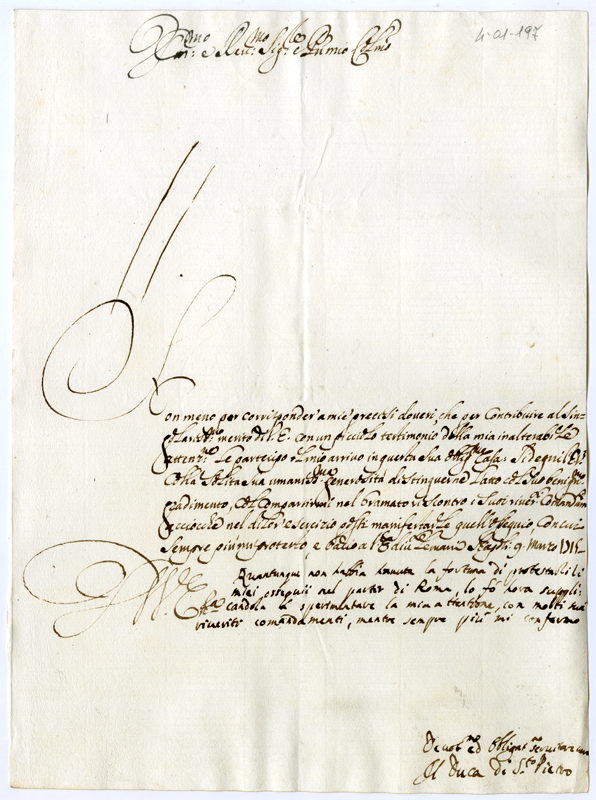 4-01-197
Em:mo e Reu:mo Sig:re e Pnmio Col:mo
Non meno per corrisponder a miei precisi doueri, che per Contribuire al Sin-
golariss:mo merito di V. E. con un picciolo testimonio della mia inalterabile
attenz:ne Le partecipo il mio arriuo in questa sua
Colla Solita sua umaniss:ma generosità distinguerne L'atto col Suo benig:mo
gradimento, col Compartirmi nel bramato riscontro i Suoi riueriti Comandam:
acciocche nel di loro esercizio possa manifestarLe quell'ossequio Con cui
Sempre più mi protesto, e bacio a V. E. diu:te Le mani Napoli 9. Marzo 1715
Quantunque non habbia hauuta la fortuna di protestarli li
miei ossequii nel partir di Roma, lo fò hora suppli:
candola à sperimentare la mia attentione, con molti suoi
riueriti comandamenti, mentre sempre più mi confermo
V. E.
Deuot:mo ed Obligat:mo seruitor uero
Il Duca di S:to Pietro